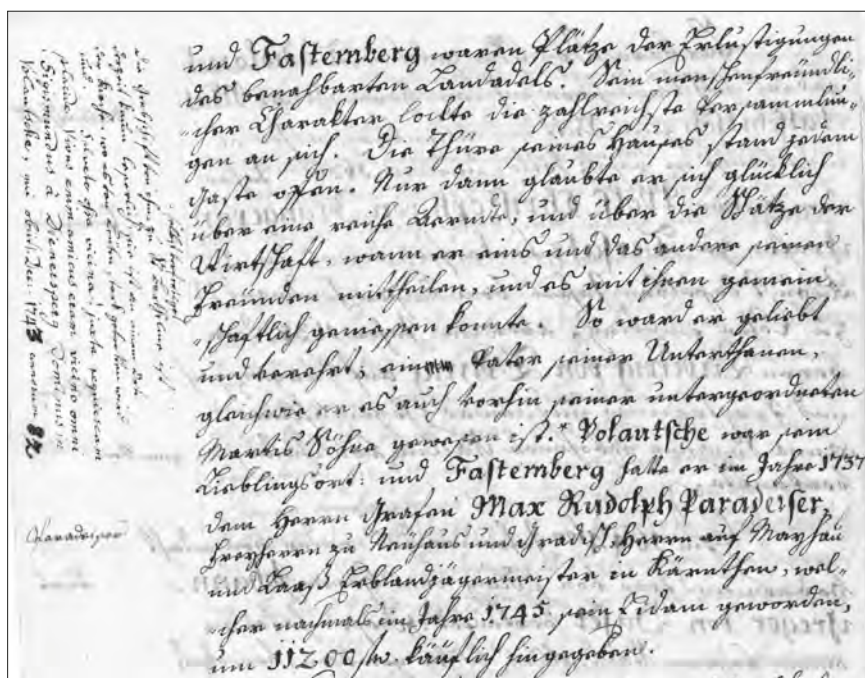 und Fasternberg waren Plätze der Erlustigungen
des benachbarten Landadels. Sein menschenfreundli-
cher Charakter lockte die zahlreichste Versammlun-
gen an sich. Die Thüre seines Hauses stand jedem
Gaste offen. Nur dann glaubte er sich glücklich
über eine reiche Aerndte, und über die Schätze der
Wirtschaft, wann er eins und das andere seinen
Freünden mittheilen, und es mit ihnen gemein-
schaftlich geniessen konnte. So ward er geliebt
und verehrt; ein Vater seiner Unterthanen,
gleichwie er es auch vorhin seiner untergeordneten
Martis Söhne gewesen ist.* Volautsche war sein
Lieblingsort: und Fasternberg hatte er im Jahre 1737
dem Herrn Grafen Max Rudolph Paradeiser,
Freyherrn zu Neühaus und Gradisch, Herrn auf Mayhau
und Laaß, Erblandjägermeister in Kärnthen, wel-
cher nachmals im Jahre 1745 sein Eidam geworden,
um 11200 fl käuflich hingegeben.
Die Grabschrift von ihme zu
ist an einem
der Kirche
und Saluto ossa vicina; juxta requiescam
plaude. Vivus enim amicus eram vicino omni
Sigismundus à Dienersperg Dominus in
Volautsche, qui obiit Dec. 1743 annorum 82.
Paradeiser